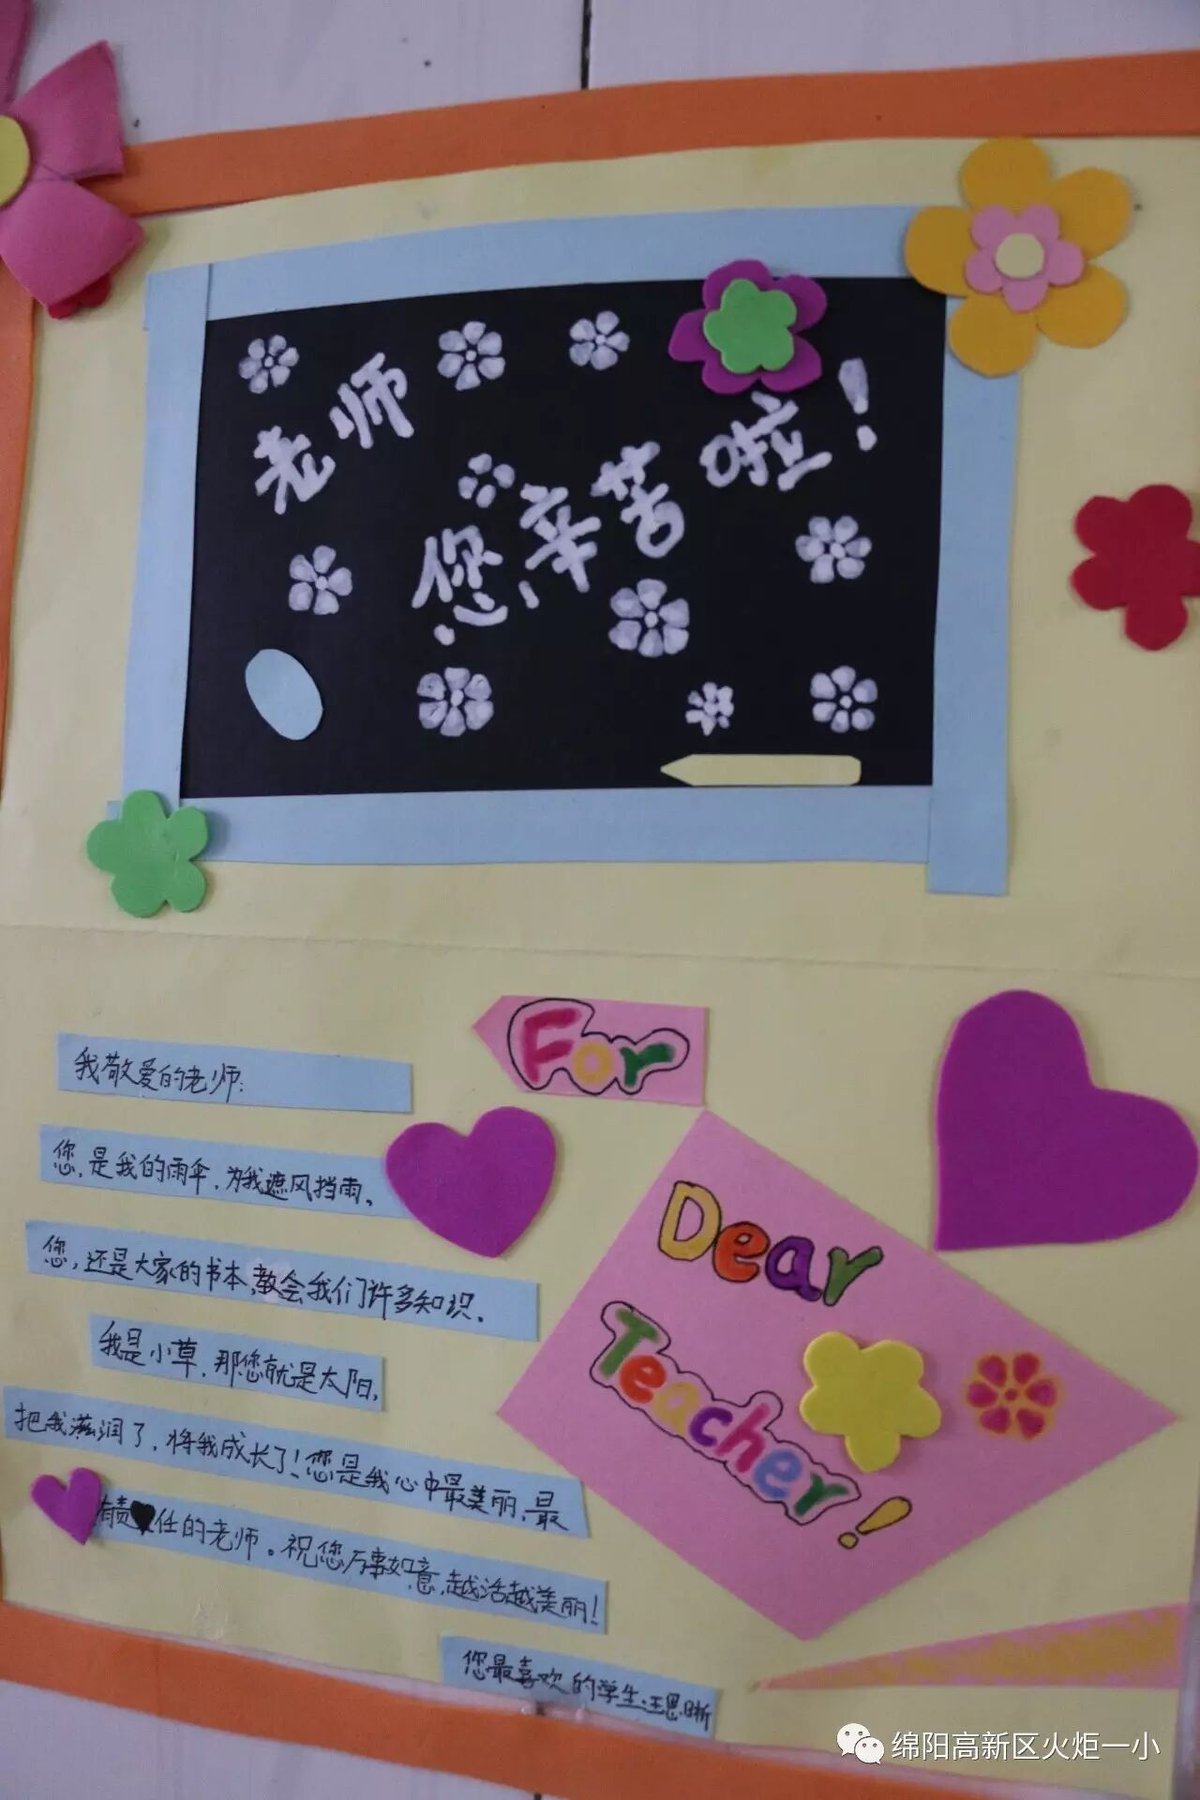 老师
您辛苦啦!
For
Dear
Teacher!
我敬爱的老师:
您,是我的雨伞,为我遮风挡雨。
您,还是大家的书本,教会我们许多知识。
我是小草,那您就是太阳,
把我滋润了,将我成长了!您是我心中最美丽,最
有责任的老师。祝您万事如意,越活越美丽!
您最喜欢的学生:王思晰
绵阳高新区火炬一小